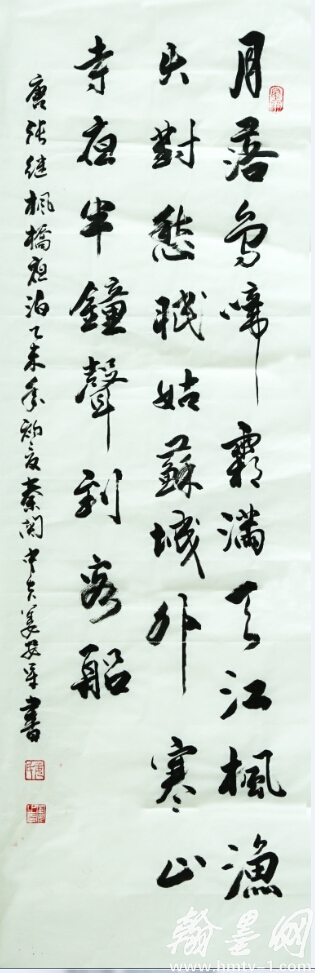 月落烏啼霜滿天江楓漁
火對愁眠姑蘇城外寒山
寺夜半鐘聲到客船
唐張继楓橋夜泊乙未年初夏秦関書
翰墨网
www.hmtv-1.com